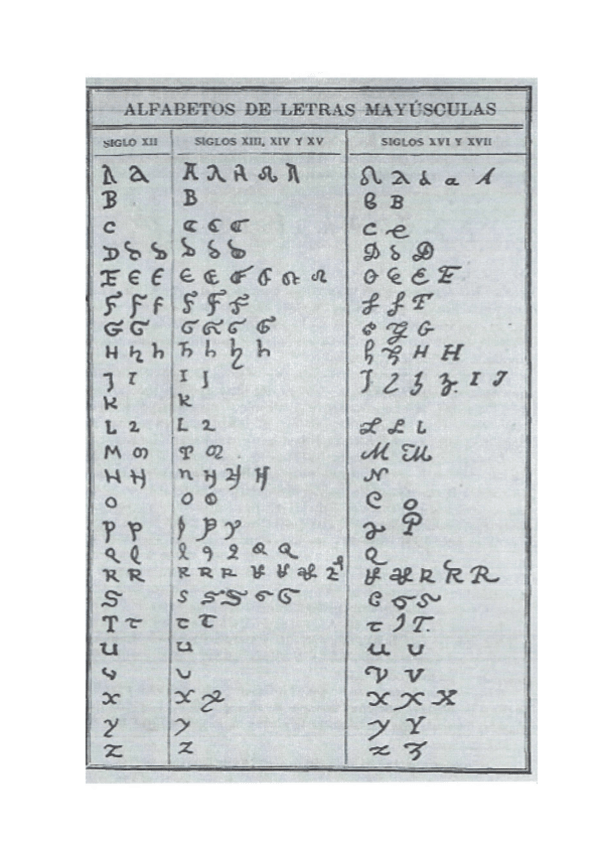 ALFABETOS DE LETRAS MAYÚSCULAS
SIGLO XII SIGLOS XIII, XIV Y XV SIGLOS XVI Y XVII
A a A A A A A A a a A
B B B B
C C C C C e
D D D D D D D D D
E E E E E E E E E E E E E
F F F F F F F F F
G G G G G G G G G
H h h h h h h h h H H
J I I J J J J J I J
K K
L L L L L L L
M M M M M M
N N N N N N N
O O O O O
P P P P P P P
Q Q Q Q Q Q Q Q
R R R R R R R R R R R R R R
S S S S S S S S S
T T T T T J T
U U U U
V V V V
X X X X X X
Y Y Y Y
Z Z Z Z